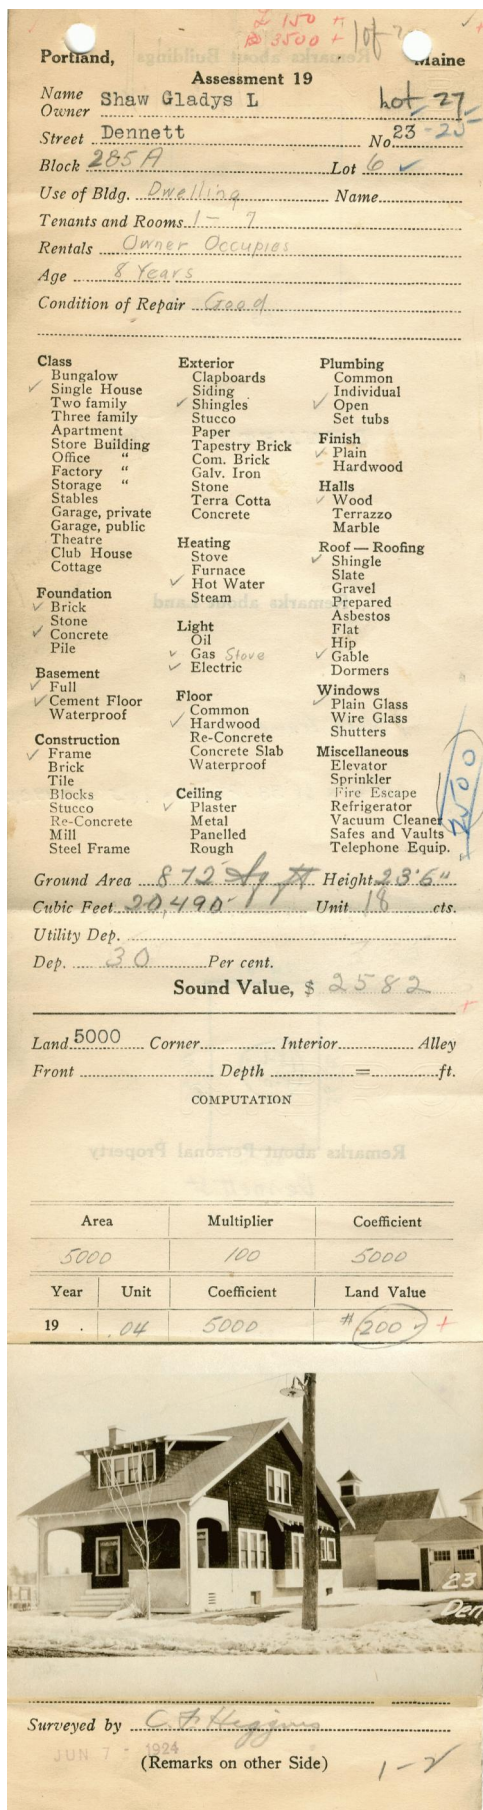 L 150 +
B 3500 +
1 of 2
Portland, Maine
Assessment 19
Name Owner Shaw Gladys L Lot 27
Street Dennett No 23-25
Block 285A Lot 6 ✓
Use of Bldg. Dwelling Name
Tenants and Rooms 1 - 7
Rentals Owner Occupies
Age 8 Years
Condition of Repair Good
Class
Bungalow
✓ Single House
Two family
Three family
Apartment
Store Building
Office "
Factory "
Storage "
Stables
Garage, private
Garage, public
Theatre
Club House
Cottage
Foundation
✓ Brick
Stone
✓ Concrete
Pile
Basement
✓ Full
✓ Cement Floor
Waterproof
Construction
✓ Frame
Brick
Tile
Blocks
Stucco
Re-Concrete
Mill
Steel Frame
Exterior
Clapboards
Siding
✓ Shingles
Stucco
Paper
Tapestry Brick
Com. Brick
Galv. Iron
Stone
Terra Cotta
Concrete
Heating
Stove
Furnace
✓ Hot Water
Steam
Light
Oil
✓ Gas Stove
✓ Electric
Floor
Common
✓ Hardwood
Re-Concrete
Concrete Slab
Waterproof
Ceiling
✓ Plaster
Metal
Panelled
Rough
Plumbing
Common
Individual
✓ Open
Set tubs
Finish
✓ Plain
Hardwood
Halls
✓ Wood
Terrazzo
Marble
Roof — Roofing
✓ Shingle
Slate
Gravel
Prepared
Asbestos
Flat
Hip
✓ Gable
Dormers
Windows
✓ Plain Glass
Wire Glass
Shutters
Miscellaneous
Elevator
Sprinkler
Fire Escape
Refrigerator
Vacuum Cleaner
Safes and Vaults
Telephone Equip.
Ground Area 872 Sq ft Height 23'6"
Cubic Feet 20,490 Unit 18 cts.
Utility Dep.
Dep. 30 Per cent.
Sound Value, $ 2582
+
Land 5000 Corner Interior Alley
Front Depth = ft.
COMPUTATION
Area Multiplier Coefficient
5000 100 5000
Year Unit Coefficient Land Value
19 . .04 5000 $200 +
23
Den
Surveyed by C. F. Higgins
JUN 7 - 1924
(Remarks on other Side)
1-2